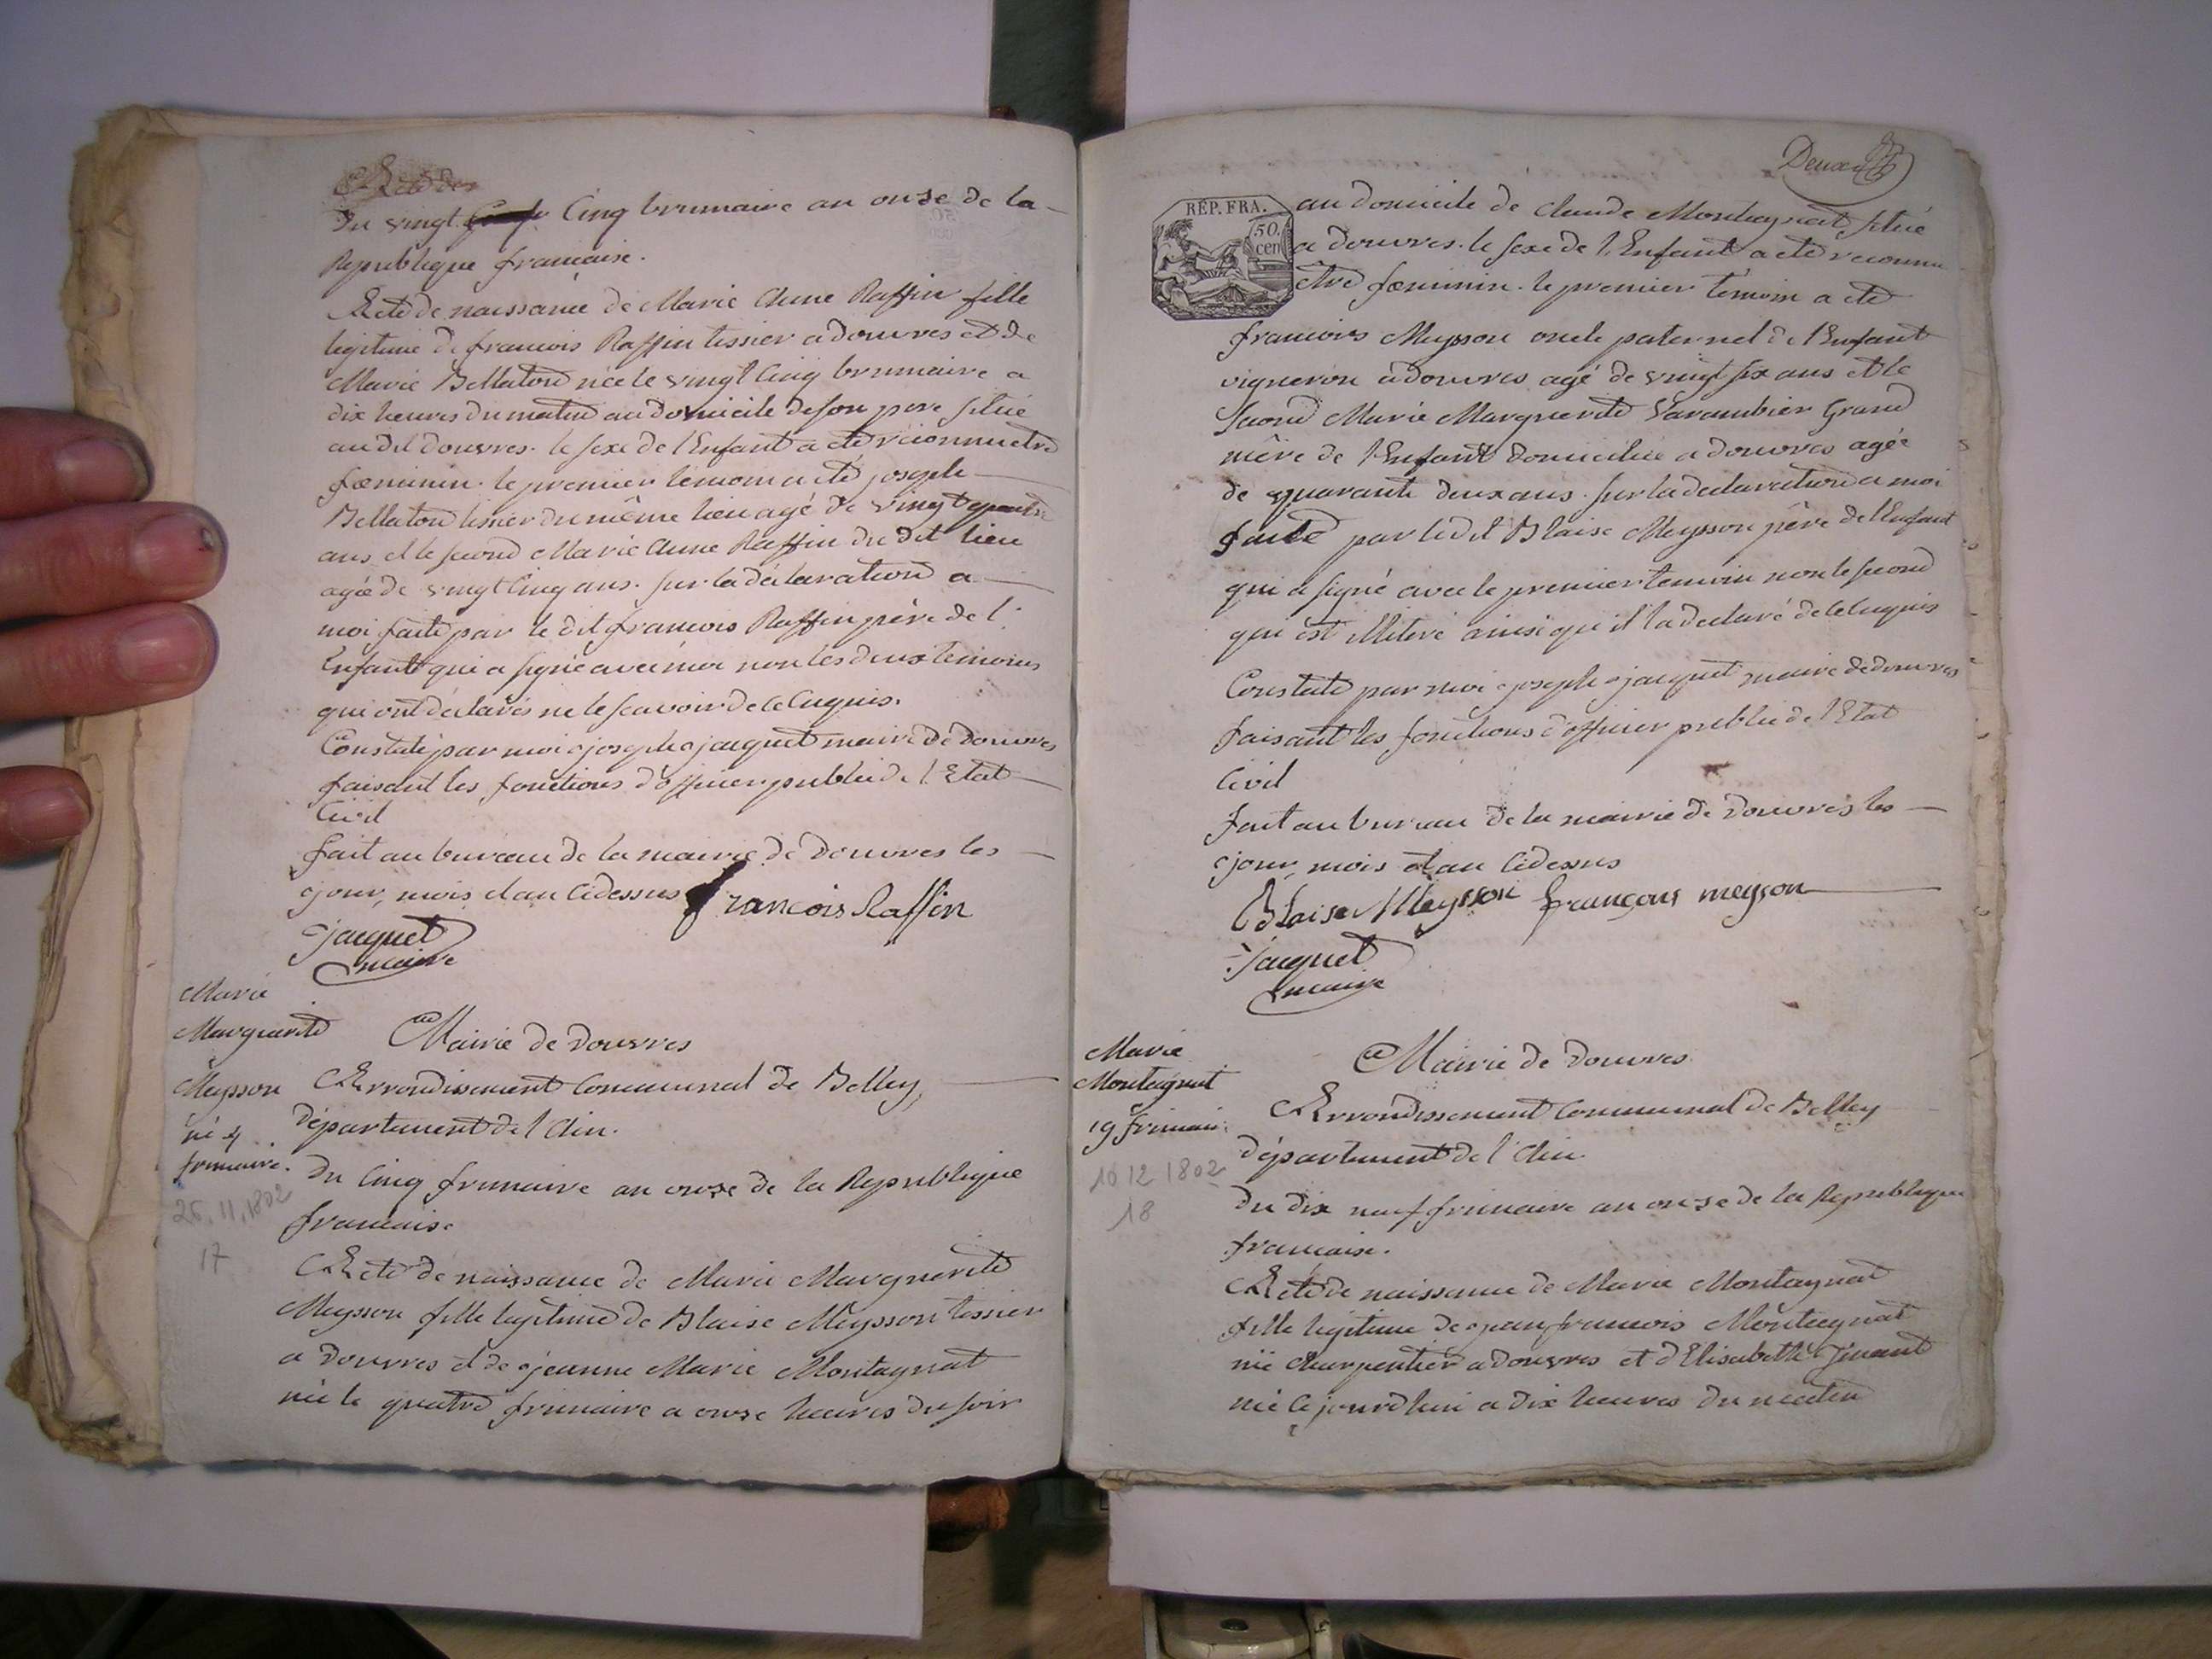 Du vingt Cinq brumaire an onze de la
Republique francaise.
Acte de naissance de Marie Anne Raffin fille
legitime de francois Raffin tissier a douvres et de
Marie Bellaton née le vingt Cinq brumaire a
dix heures du matin au domicile de son pere situé
au dit douvres. le sexe de l'Enfant a été reconnu etre
fœminin. le premier temoin a été joseph
Bellaton tissier du même lieu agé de vingt quatre
ans et le second Marie Anne Raffin du dit lieu
agée de vingt Cinq ans. sur la déclaration a
moi faite par le dit francois Raffin père de l'
Enfant qui a signé avec moi non les deux temoins
qui ont déclarés ne le scavoir de ce Enquis.
Constaté par moi joseph jacquet maire de douvres
faisant les fonctions d'officier public de l'Etat
Civil
fait au bureau de la mairie de douvres les
jour, mois et an Cidessus francois Raffin
jacquet
maire
Marie
Marguerite
Meysson
né 4
frimaire.
25.11.1802
17
Mairie de douvres
Arrondissement Communal de Belley,
département de l'Ain.
Du Cinq frimaire an onze de la Republique
francaise
Acte de naissance de Marie Marguerite
Meysson fille legitime de Blaise Meysson tissier
a douvres et de jeanne Marie Montagnat
née le quatre frimaire a onze heures du soir
Deux
RÉP. FRA.
50.
cen
au domicile de Claude Montagnat situé
a douvres. le sexe de l'Enfant a été reconnu
être fœminin. le premier témoin a été
francois Meysson oncle paternel de l'Enfant
vigneron a douvres agé de vingt six ans et le
second Marie Marguerite Varambier Grand
mère de l'Enfant domiciliée a douvres agée
de quarante deux ans. sur la déclaration a moi
faite par le dit Blaise Meysson père de l'Enfant
qui a signé avec le premier temoin non le second
qui est illiteré ainsi qu'il l'a declaré de ce Enquis
Constaté par moi joseph jacquet maire de douvres
faisant les fonctions d'officier public de l'Etat
Civil
fait au bureau de la mairie de douvres les
jour, mois et an Cidessus
Blaise Meysson françois meyson
jacquet
maire
Marie
Montagnat
19 frimair.
10 12 1802
18
Mairie de douvres.
Arrondissement Communal de Belley
département de l'Ain.
Du dix neuf frimaire an onze de la Republique
francaise.
Acte de naissance de Marie Montagnat
fille legitime de jean francois Montagnat
charpentier a douvres et d'Elisabeth
née Ce jourdhui a dix heures du matin